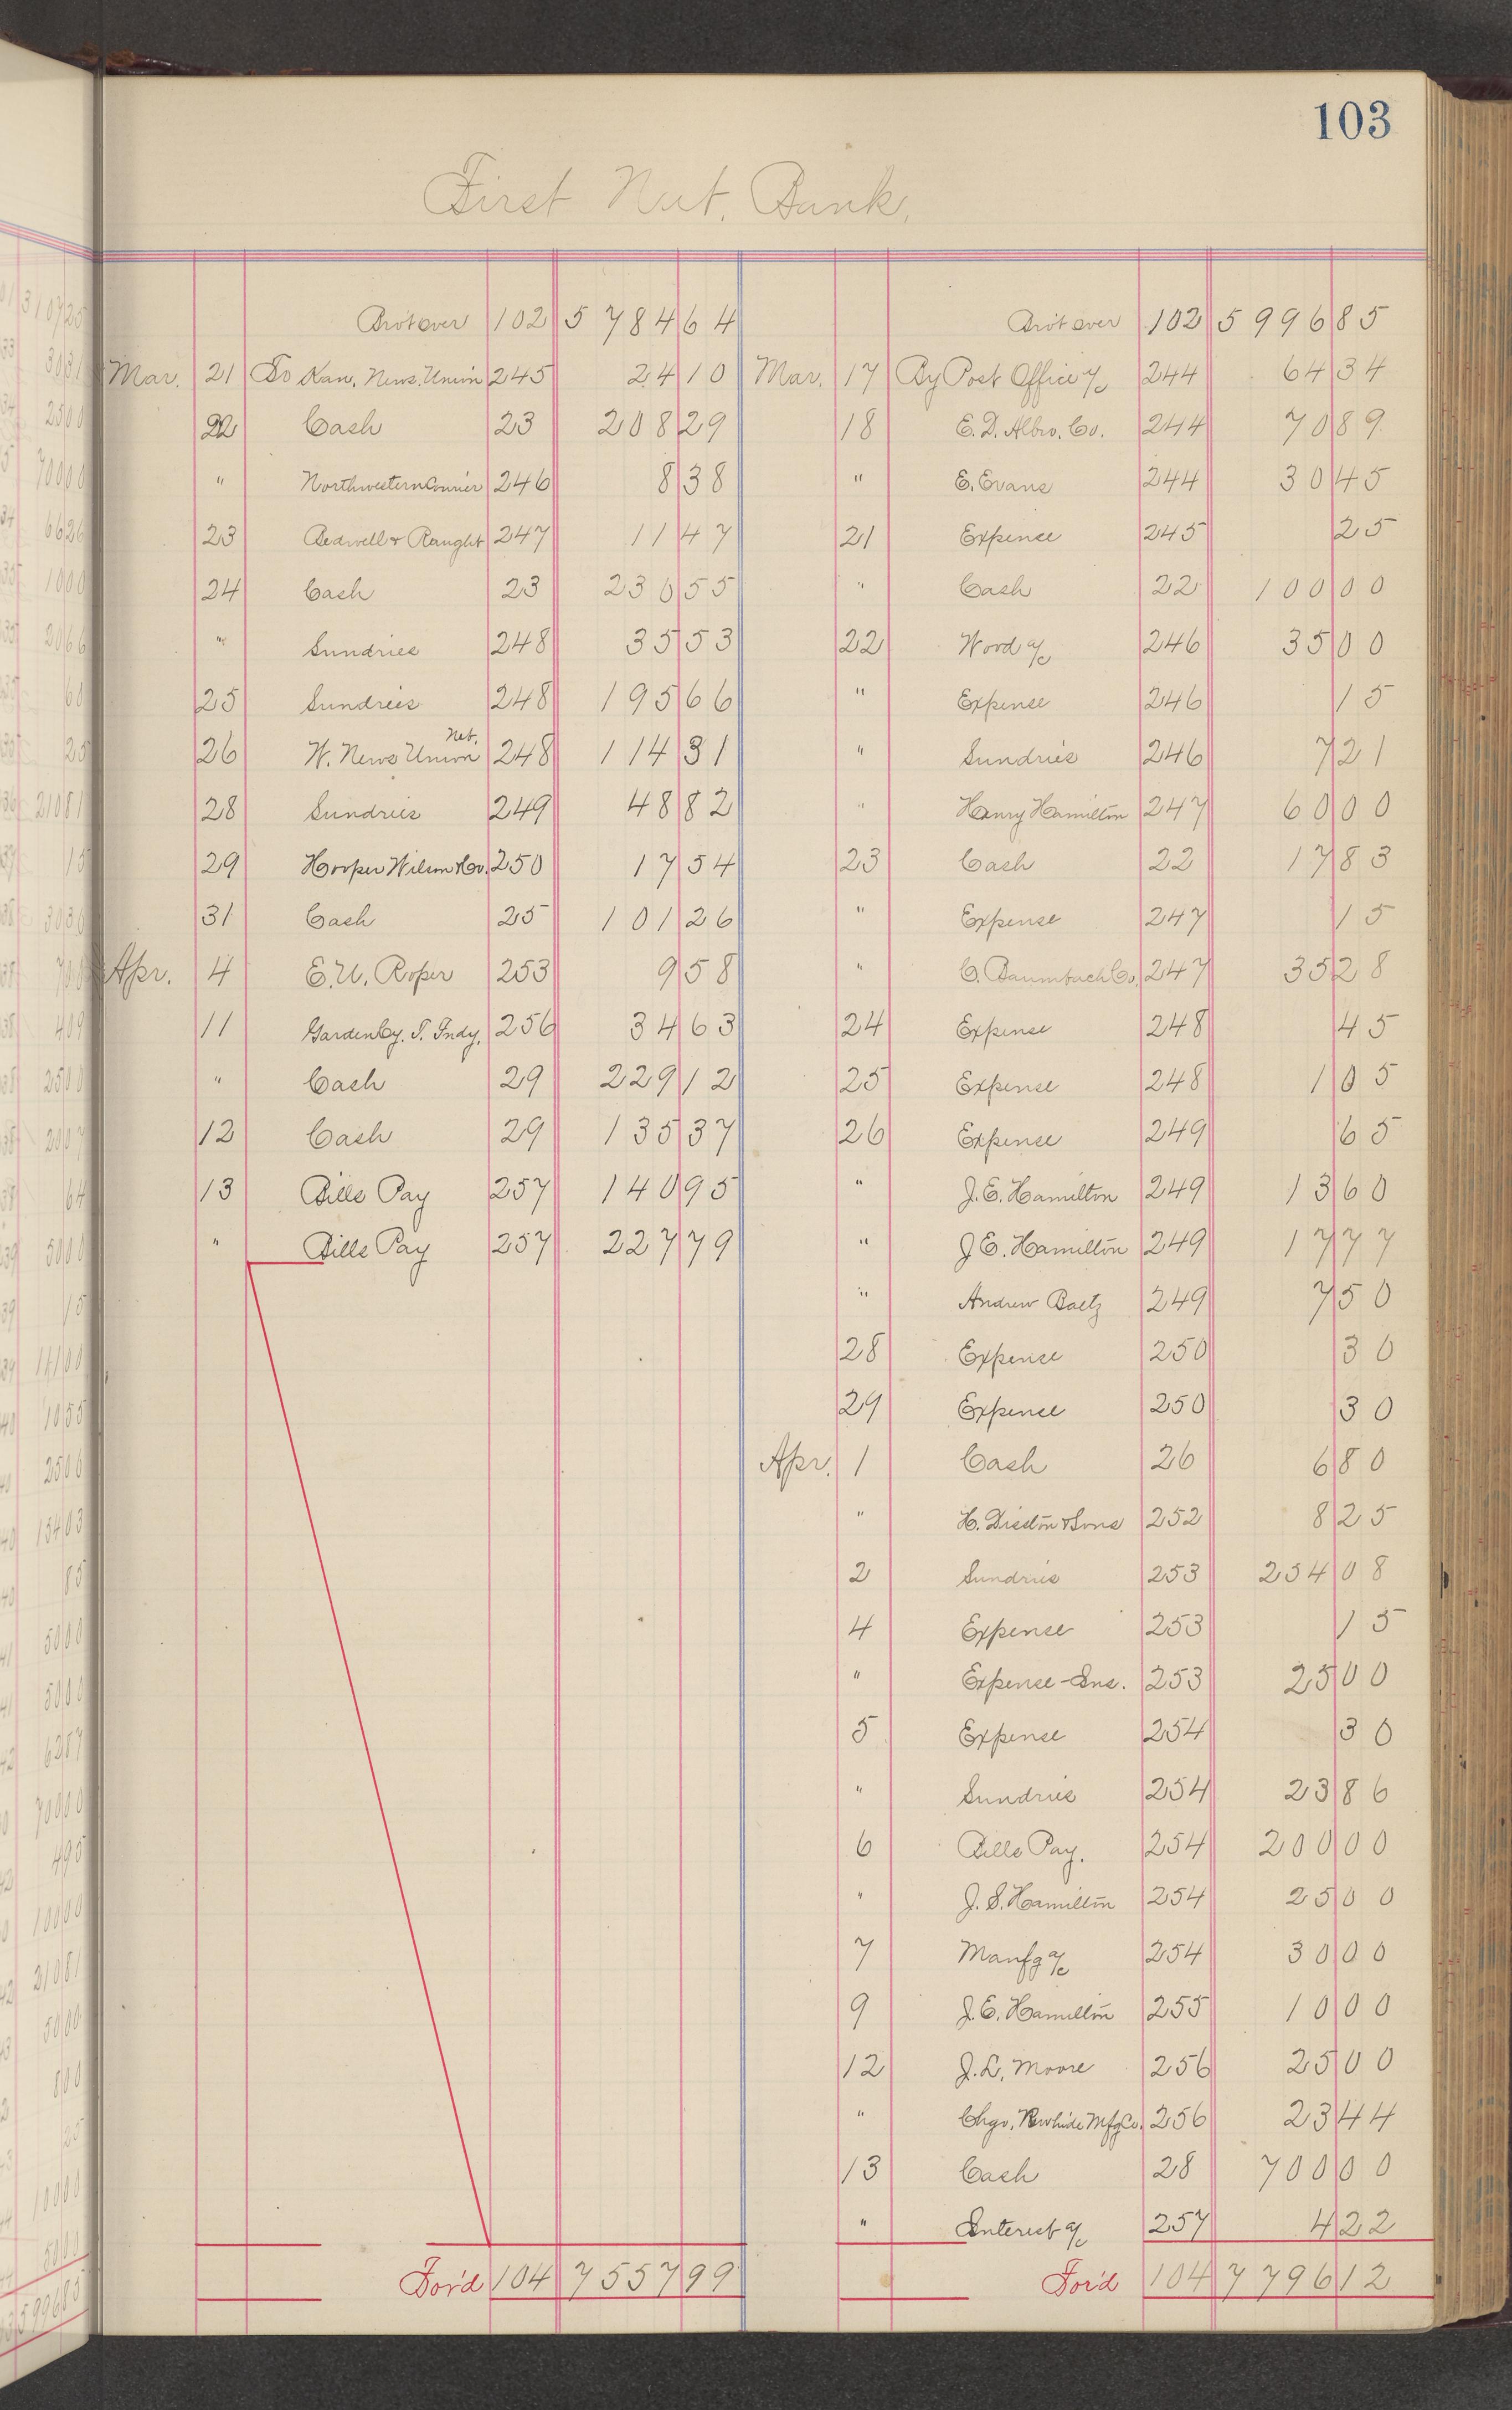 103
First Nat. Bank.
Bro't over 102 5784 64
Mar. 21 To Kan. News. Union 245 24 10
22 Cash 23 208 29
" Northwestern Courier 246 8 38
23 Bedwell & Raught 247 11 47
24 Cash 23 230 55
" Sundries 248 35 53
25 Sundries 248 195 66
26 W. News Union Neb. 248 114 31
28 Sundries 249 48 82
29 Hooper Wilson & Co. 250 17 54
31 Cash 25 101 26
Apr. 4 E.U. Roper 253 9 58
11 Garden Cy. T. Fndy. 256 34 63
" Cash 29 229 12
12 Cash 29 135 37
13 Bills Pay 257 140 95
" Bills Pay 257 227 79
For'd 104 7557 99
Bro't over 102 5996 85
Mar. 17 By Post Office a/c 244 64 34
18 E.D. Albro. Co. 244 70 89
" E. Evans 244 30 45
21 Expense 245 25
" Cash 22 100 00
22 Wood a/c 246 35 00
" Expense 246 15
" Sundries 246 7 21
" Henry Hamilton 247 60 00
23 Cash 22 17 83
" Expense 247 15
" C. Baumbach Co. 247 35 28
24 Expense 248 45
25 Expense 248 1 05
26 Expense 249 65
" J.E. Hamilton 249 13 60
" J E. Hamilton 249 17 77
" Andrew Baetz 249 7 50
28 Expense 250 30
29 Expense 250 30
Apr. 1 Cash 26 6 80
" H. Disston & Sons 252 8 25
2 Sundries 253 254 08
4 Expense 253 15
" Expense - Ins. 253 25 00
5 Expense 254 30
" Sundries 254 23 86
6 Bills Pay. 254 200 00
" J.S. Hamilton 254 25 00
7 Manfg a/c 254 30 00
9 J.E. Hamilton 255 10 00
12 J.L. Moore 256 25 00
" Chgo. Rawhide Mfg Co. 256 23 44
13 Cash 28 700 00
" Interest a/c 257 4 22
For'd 104 7796 12